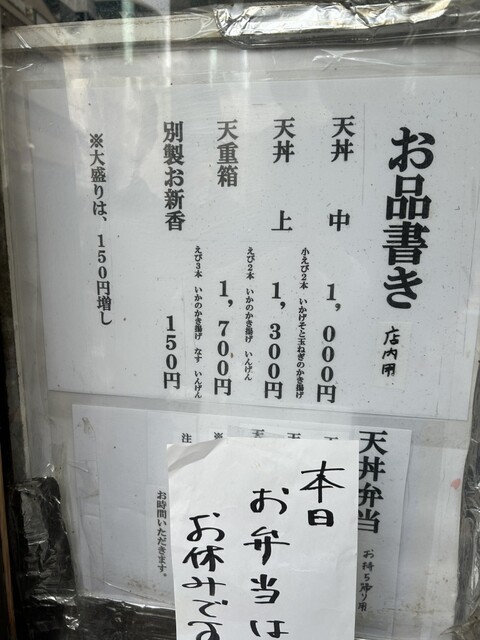 お品書き 店内用
天丼 中 1,000円
小えび2本 いかげそと玉ねぎのかき揚げ
天丼 上 1,300円
えび2本 いかのかき揚げ いんげん
天重箱 1,700円
えび3本 いかのかき揚げ なす いんげん
別製お新香 150円
※大盛りは、150円増し
天丼弁当 お持ち帰り用
※
注
お時間いただきます。
本日
お弁当は
お休みです